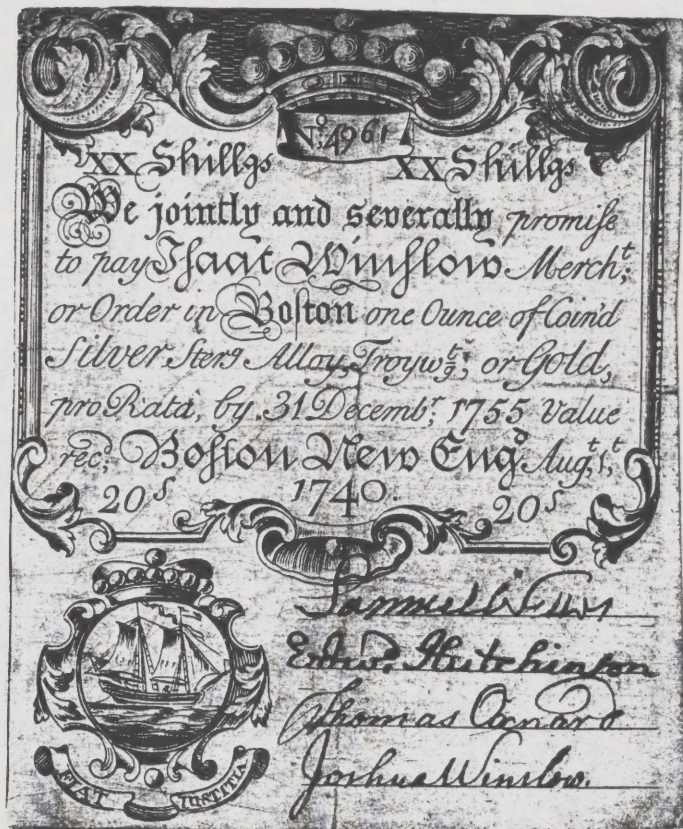 No. 4961
XX Shillgs XX Shillgs
We jointly and severally promise
to pay Isaac Winslow Mercht;
or Order in Boston one Ounce of Coin'd
Silver Sterg Alloy, Troywgt; or Gold,
pro Rata, by 31 Decembr, 1755 Value
recd; Boston New Engd. Augt, 1,t
20s 1740. 20s
Samuel
Edwd. Hutchinson
Thomas Oxnard
Joshua Winslow.
FIAT IUSTITIA